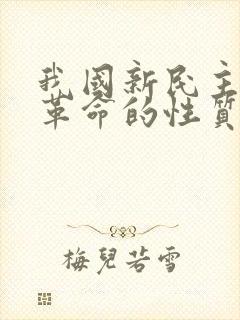 我國新民主
革命的性質
梅兒若雪